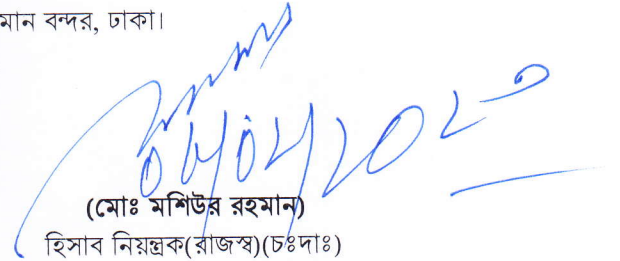 মান বন্দর, ঢাকা।
(মোঃ মশিউর রহমান)
হিসাব নিয়ন্ত্রক(রাজস্ব)(চঃদাঃ)